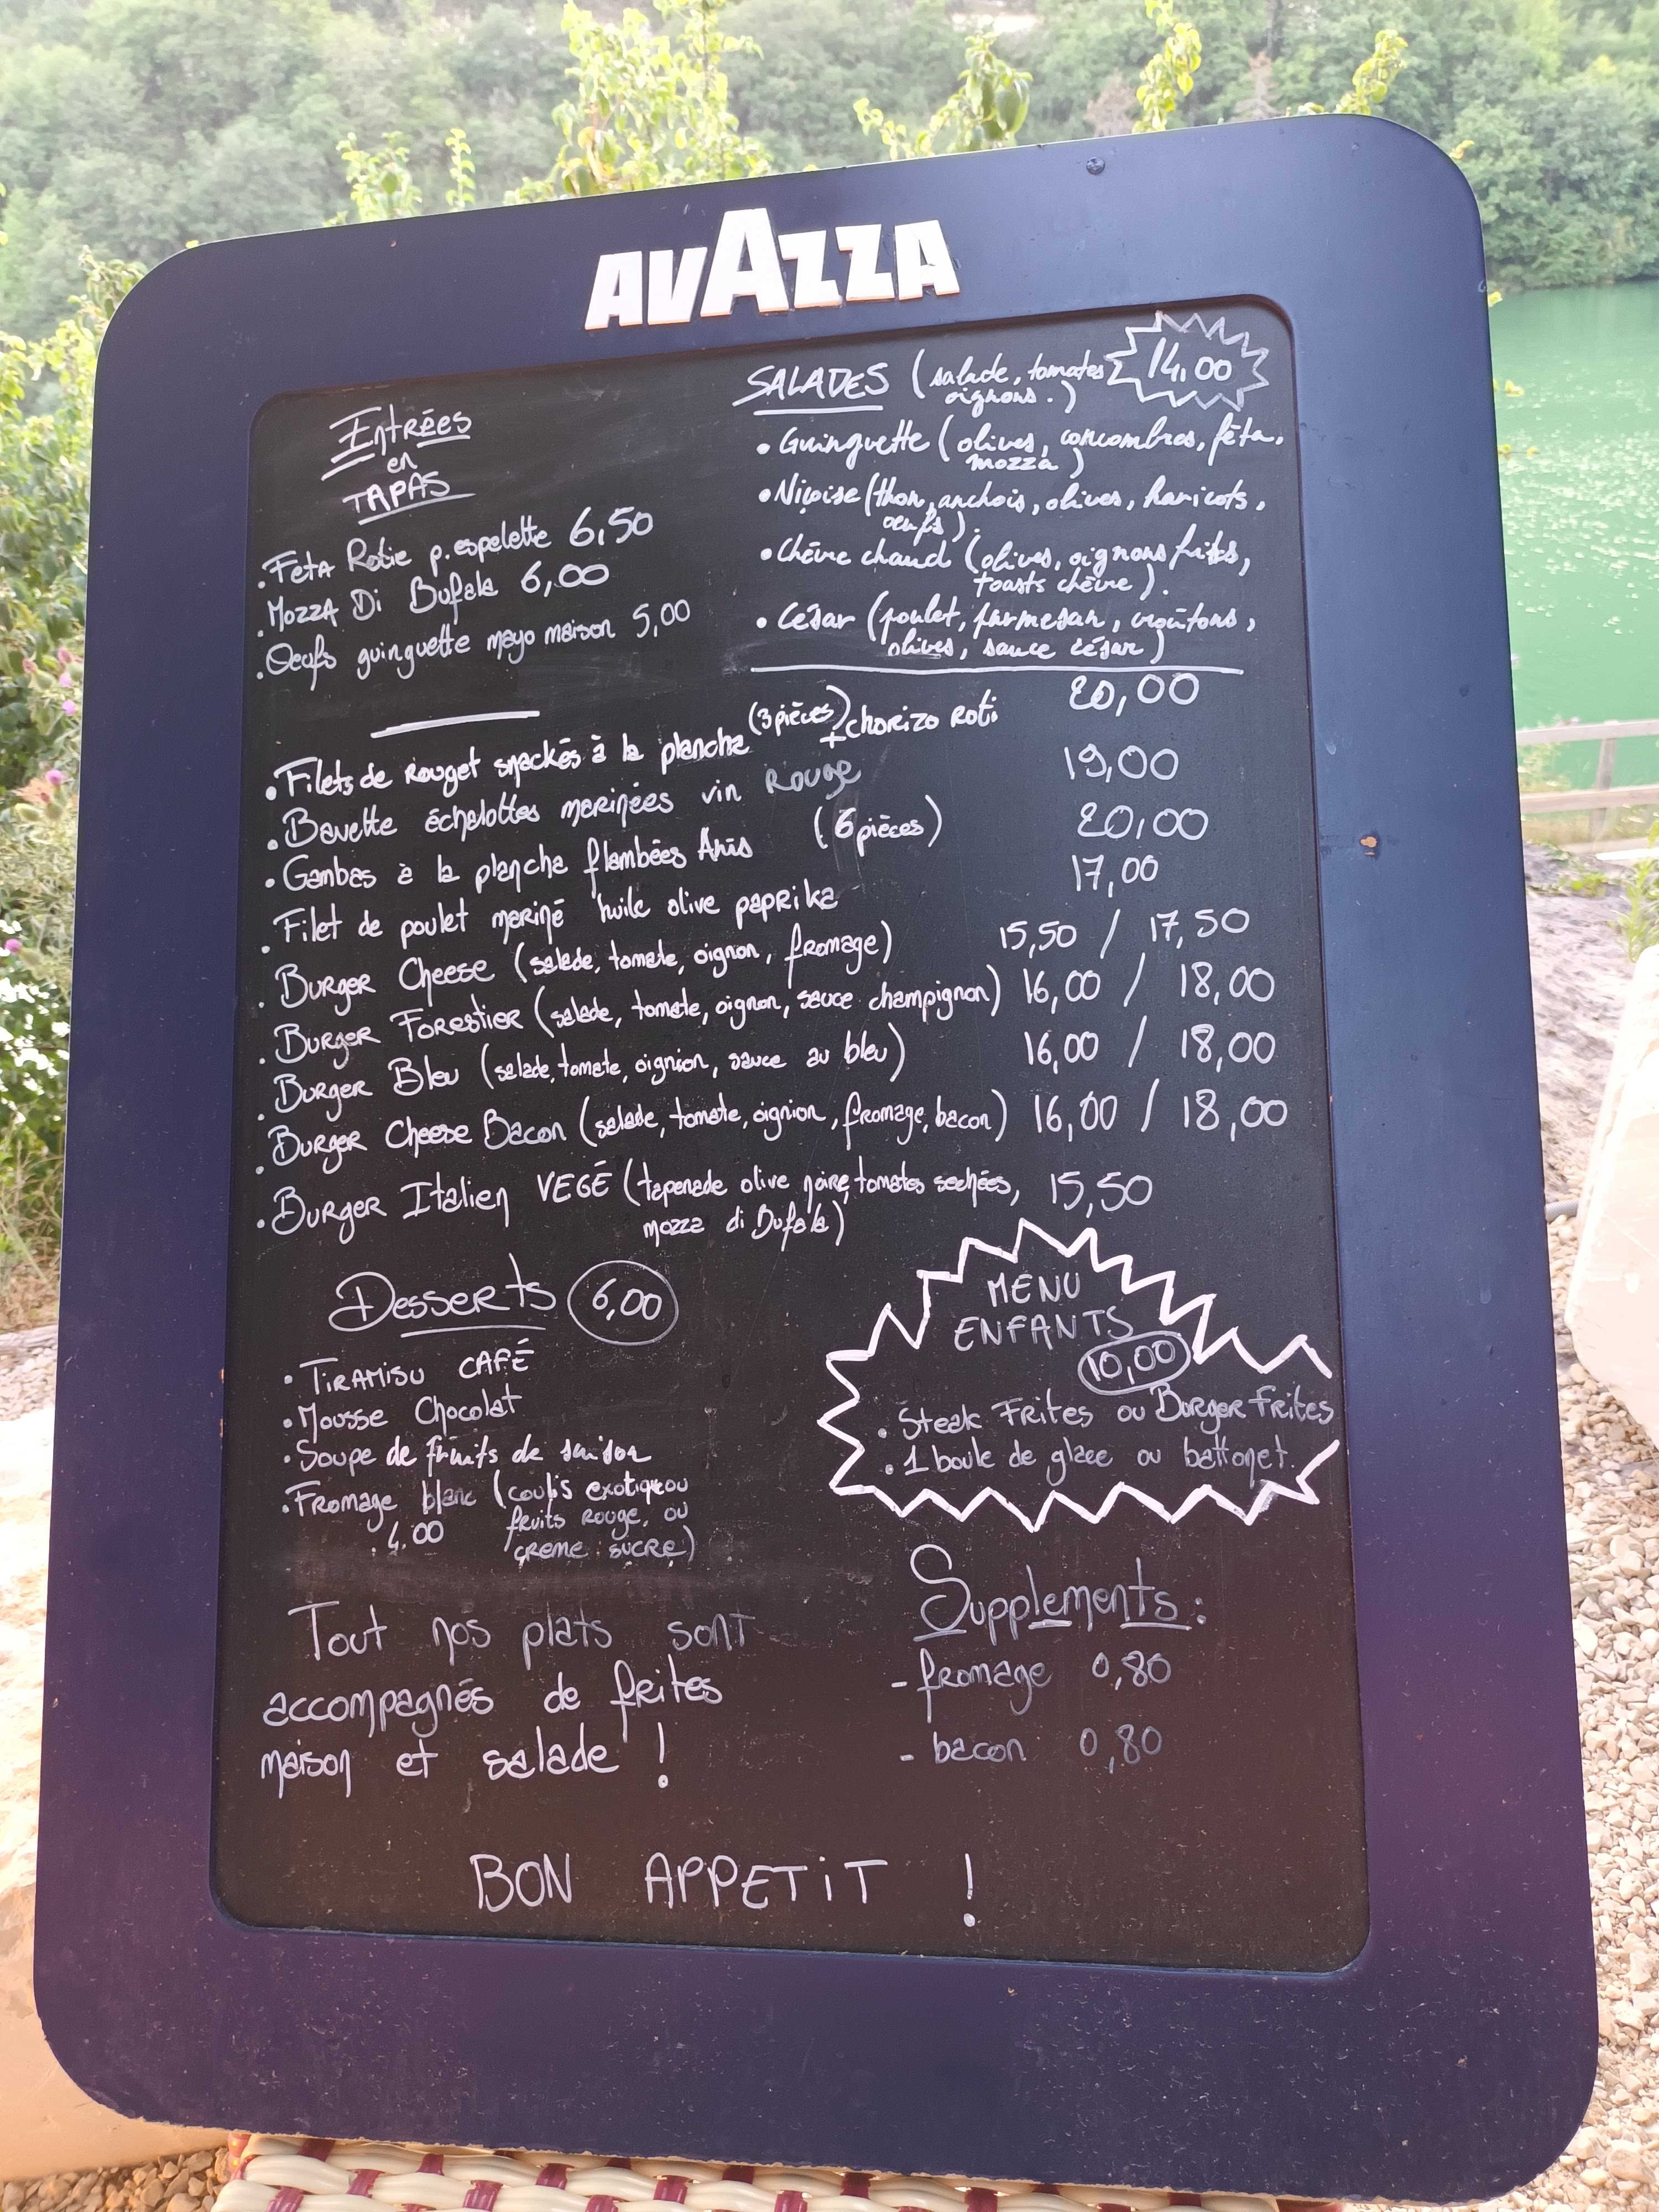 AVAZZA
Entrées
en
TAPAS
. Feta Rotie p. espelette 6,50
. Mozza Di Bufala 6,00
. Oeufs guinguette mayo maison 5,00
SALADES (salade, tomates
oignons.)
14,00
• Guinguette (olives, concombres, féta,
mozza)
• Niçoise (thon, anchois, olives, haricots,
oeufs).
• Chèvre chaud (olives, oignons frits,
toasts chèvre).
• César (poulet, parmesan, croûtons,
olives, sauce césar)
• Filets de Rouget snackés à la plancha (3 pièces) + chorizo Roti 20,00
• Bavette échalottes marinées vin Rouge 19,00
• Gambas à la plancha flambées Anis (6 pièces) 20,00
. Filet de poulet mariné huile olive paprika 17,00
. Burger Cheese (salade, tomate, oignon, fromage) 15,50 / 17,50
. Burger Forestier (salade, tomate, oignon, sauce champignon) 16,00 / 18,00
. Burger Bleu (salade, tomate, oignion, sauce au bleu) 16,00 / 18,00
. Burger Cheese Bacon (salade, tomate, oignion, fromage, bacon) 16,00 / 18,00
. Burger Italien VEGÉ (tapenade olive noire, tomates sechées, 15,50
mozza di Bufala)
Desserts 6,00
• TIRAMISU CAFÉ
• Mousse Chocolat
• Soupe de fruits de saison
• Fromage blanc (coulis exotique ou
4.00 fruits Rouge, ou
creme sucre)
MENU
ENFANTS
10,00
. Steak Frites ou Burger frites
. 1 boule de glace ou battonet.
Tout nos plats sont
accompagnés de frites
maison et salade !
Supplements :
- fromage 0,80
- bacon 0,80
BON APPETIT !